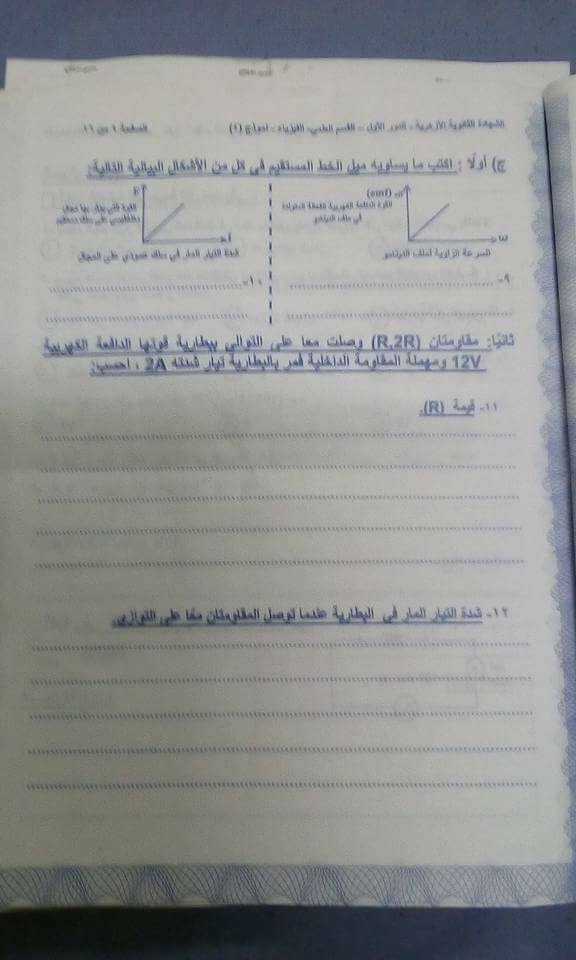 الشهادة الثانوية الأزهرية - الدور الأول - القسم العلمي - الفيزياء - نموذج (٤)
الصفحة ٦ من ١١
ج) أولًا : اكتب ما يساويه ميل الخط المستقيم فى كل من الأشكال البيانية التالية:
(emf)
القوة الدافعة الكهربية العظمى المتولدة
في ملف الدينامو
ω
السرعة الزاوية لملف الدينامو
٩-
F
I
شدة التيار المار في سلك عمودي على المجال
١٠-
ثانيًا: مقاومتان (R,2R) وصلت معا على التوالي ببطارية قوتها الدافعة الكهربية
12V ومهملة المقاومة الداخلية فمر بالبطارية تيار شدته 2A ، احسب:
١١- قيمة (R).
١٢- شدة التيار المار في البطارية عندما توصل المقاومتان معًا على التوازي.